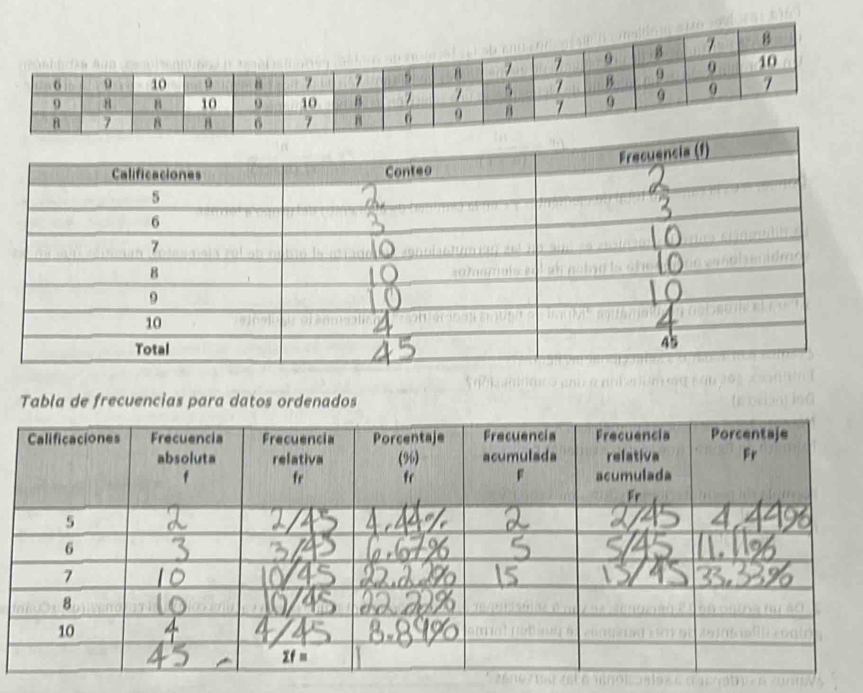 6 9 10 9 8 7 7 5 8 7 7 9 8 7 8
9 8 8 10 9 10 8 7 7 5 7 8 9 9 10
8 7 8 8 6 7 8 6 9 8 7 9 9 9 7
Calificaciones Conteo Frecuencia (f)
5 2 2
6 3 3
7 10 10
8 10 10
9 10 10
10 4 4
Total 45 45
Tabla de frecuencias para datos ordenados
Calificaciones Frecuencia Frecuencia Porcentaje Frecuencia Frecuencia Porcentaje
absoluta relativa (%) acumulada relativa Fr
f fr fr F acumulada
Fr
5 2 2/45 4.44% 2 2/45 4.44%
6 3 3/45 6.67% 5 5/45 11.11%
7 10 10/45 22.22% 15 15/45 33.33%
8 10 10/45 22.22%
10 4 4/45 8.89%
45 Σf =